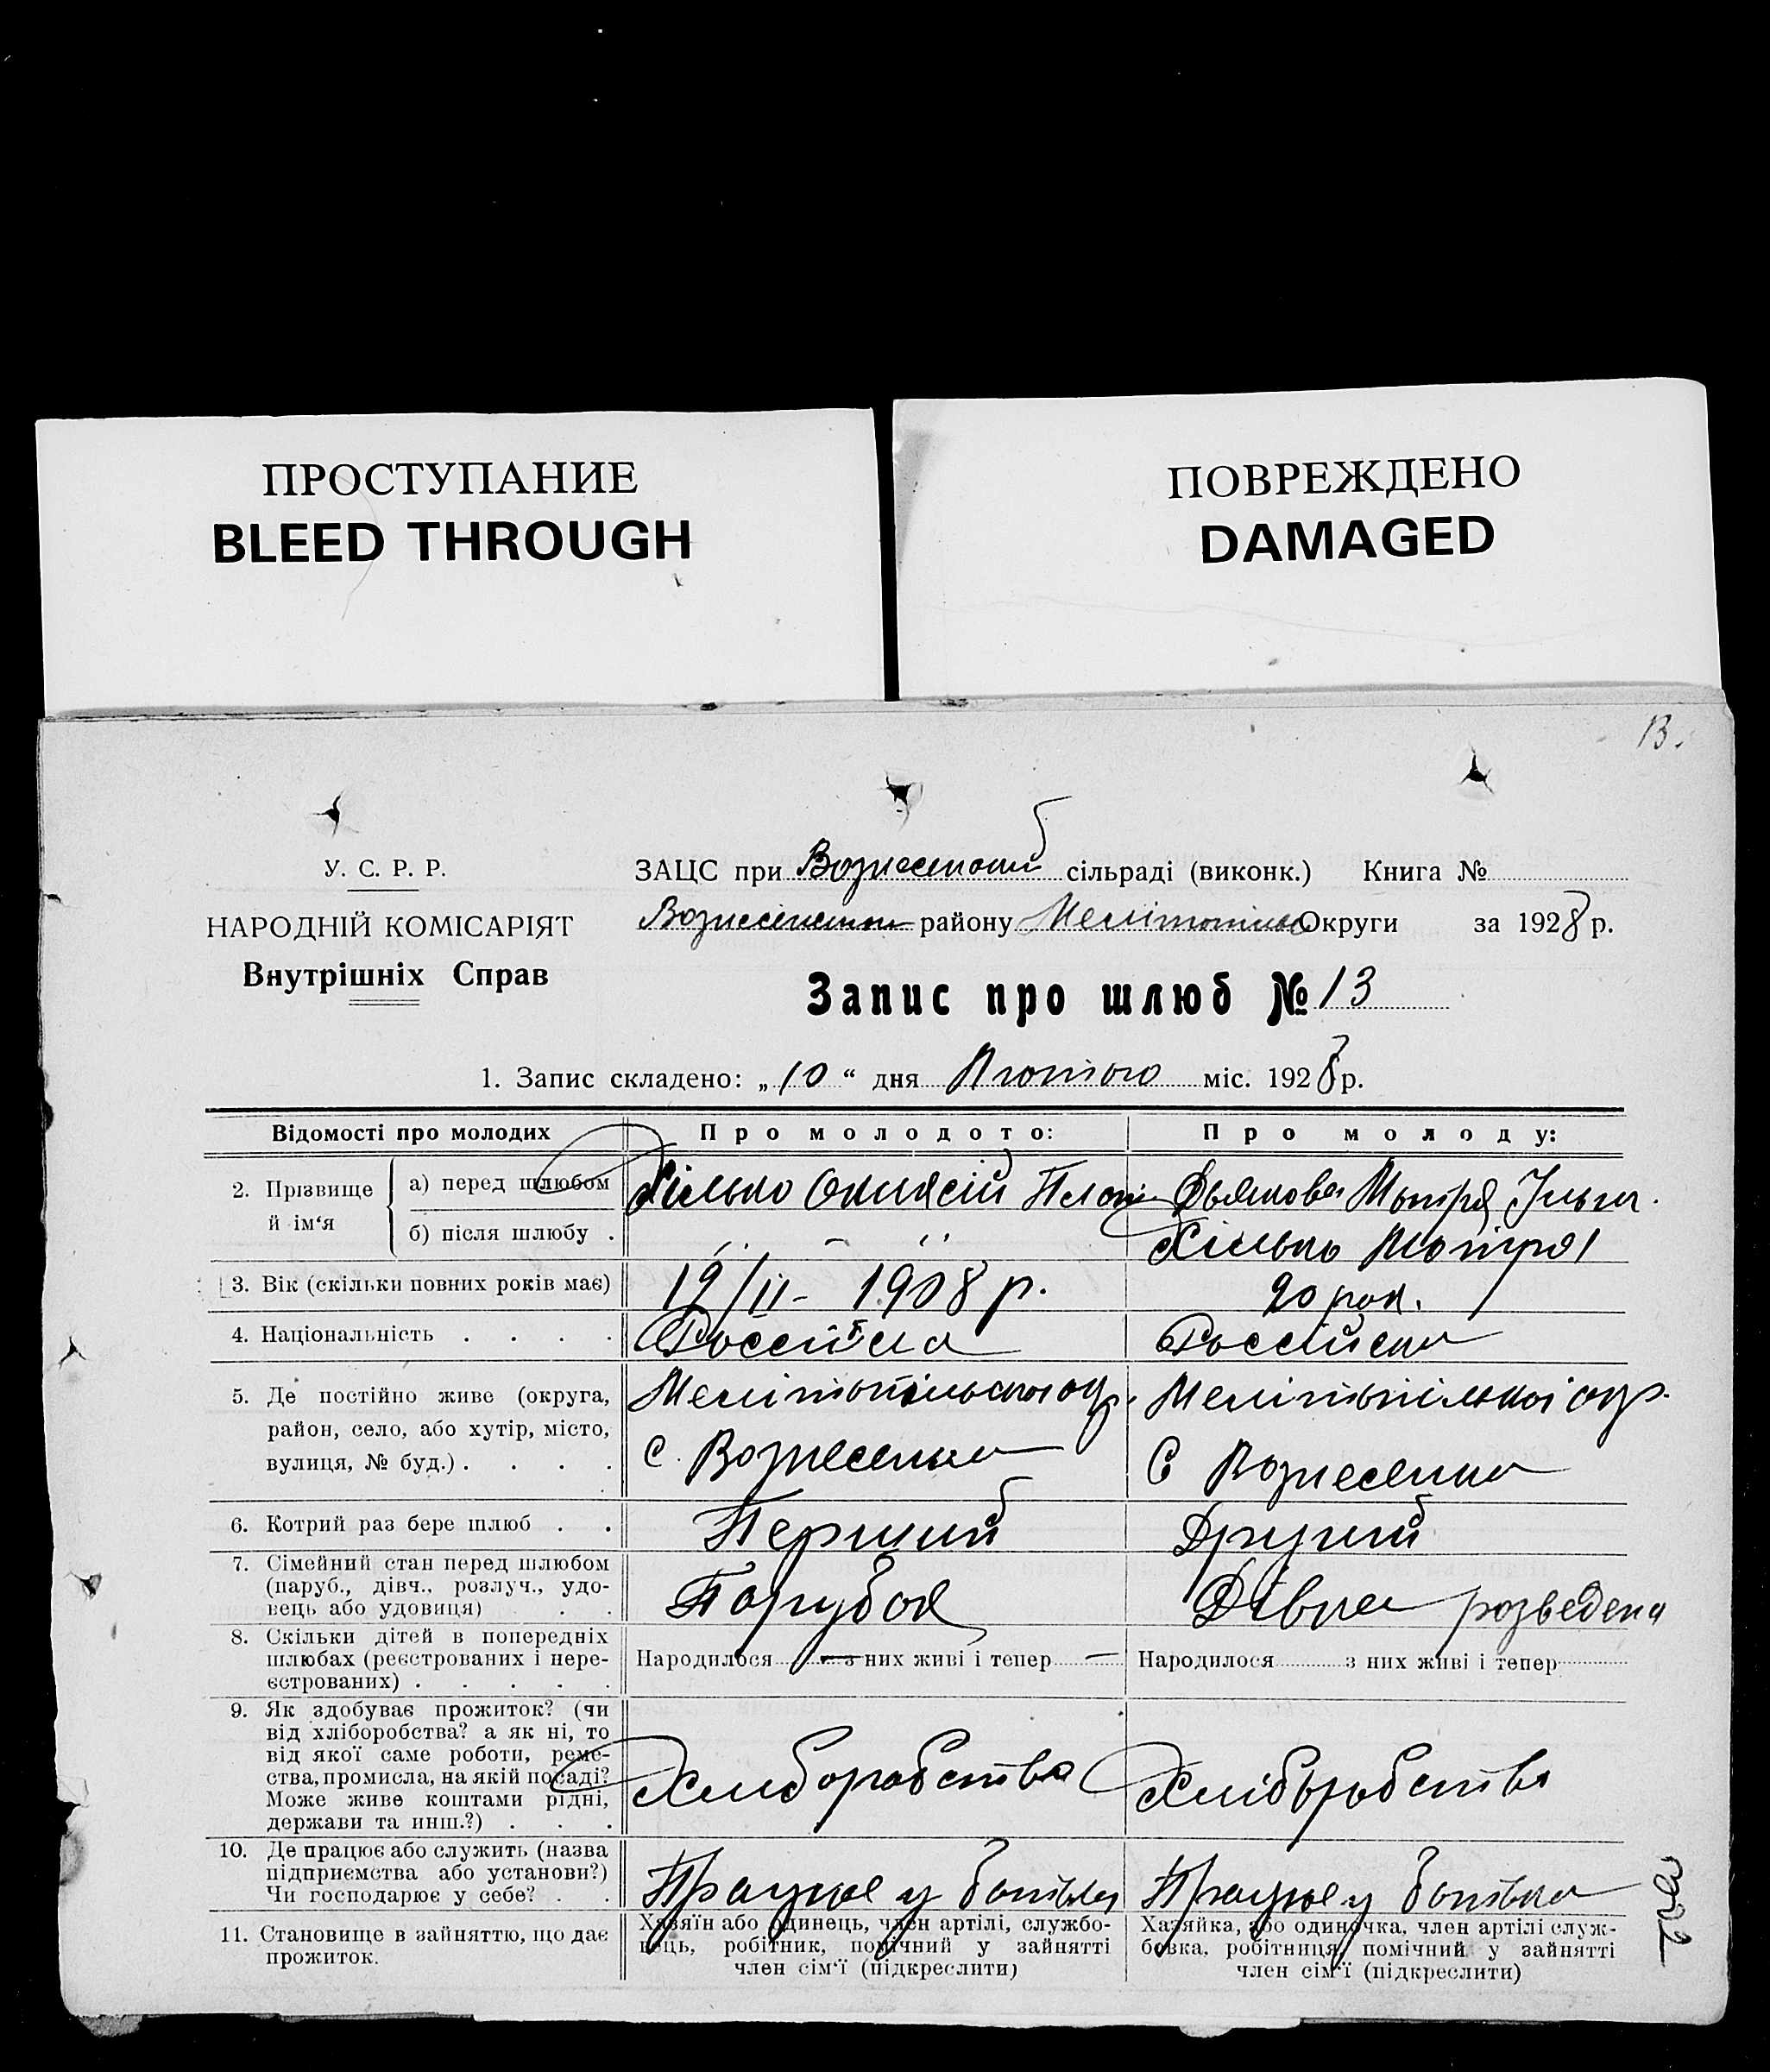 ПРОСТУПАНИЕ
BLEED THROUGH
ПОВРЕЖДЕНО
DAMAGED
13.
У. С. Р. Р.
НАРОДНІЙ КОМІСАРІЯТ
Внутрішніх Справ
ЗАЦС при сільраді (виконк.) Книга №
району Округи за 1928 р.
Запис про шлюб № 13
1. Запис складено: „10“ дня Лютого міс. 1928 р.
Відомості про молодих
Про молодого:
Про молоду:
2. Прізвище й ім‘я
а) перед шлюбом
Хілько Плат
Дьякова Мотря Ільи.
б) після шлюбу .
„ – „
Хілько Мотря
3. Вік (скільки повних років має)
19/II - 1908 р.
20 рок.
4. Національність . . . .
Россійска
Россійска
5. Де постійно живе (округа,
район, село, або хутір, місто,
вулиця, № буд.) . . . .
Мелітопільскої окр.
с. Вознесенка
Мелітопільскої окр.
С Вознесенка
6. Котрий раз бере шлюб . .
Перший
Другий
7. Сімейний стан перед шлюбом
(паруб., дівч., розлуч., удо-
вець або удовиця) . .
Парубок
розведена
8. Скільки дітей в попередніх
шлюбах (реєстрованих і нере-
єстрованих) . . . . .
Народилося — з них живі і тепер —
Народилося з них живі і тепер
9. Як здобуває прожиток? (чи
від хліборобства? а як ні, то
від якої саме роботи, реме-
ства, промисла, на якій посаді?
Може живе коштами рідні,
держави та инш.?) . . .
Хліборобства
Хліборобства
10. Де працює або служить (назва
підприємства або установи?)
Чи господарює у себе? . .
Працює у батька
Працює у батька
11. Становище в зайняттю, що дає
прожиток.
Хазяїн або одинець, член артілі, службо-
вець, робітник, помічний у зайнятті
член сім‘ї (підкреслити)
Хазяйка, або одиночка, член артілі служ-
бовка, робітниця, помічний у зайнятті
член сім‘ї (підкреслити)